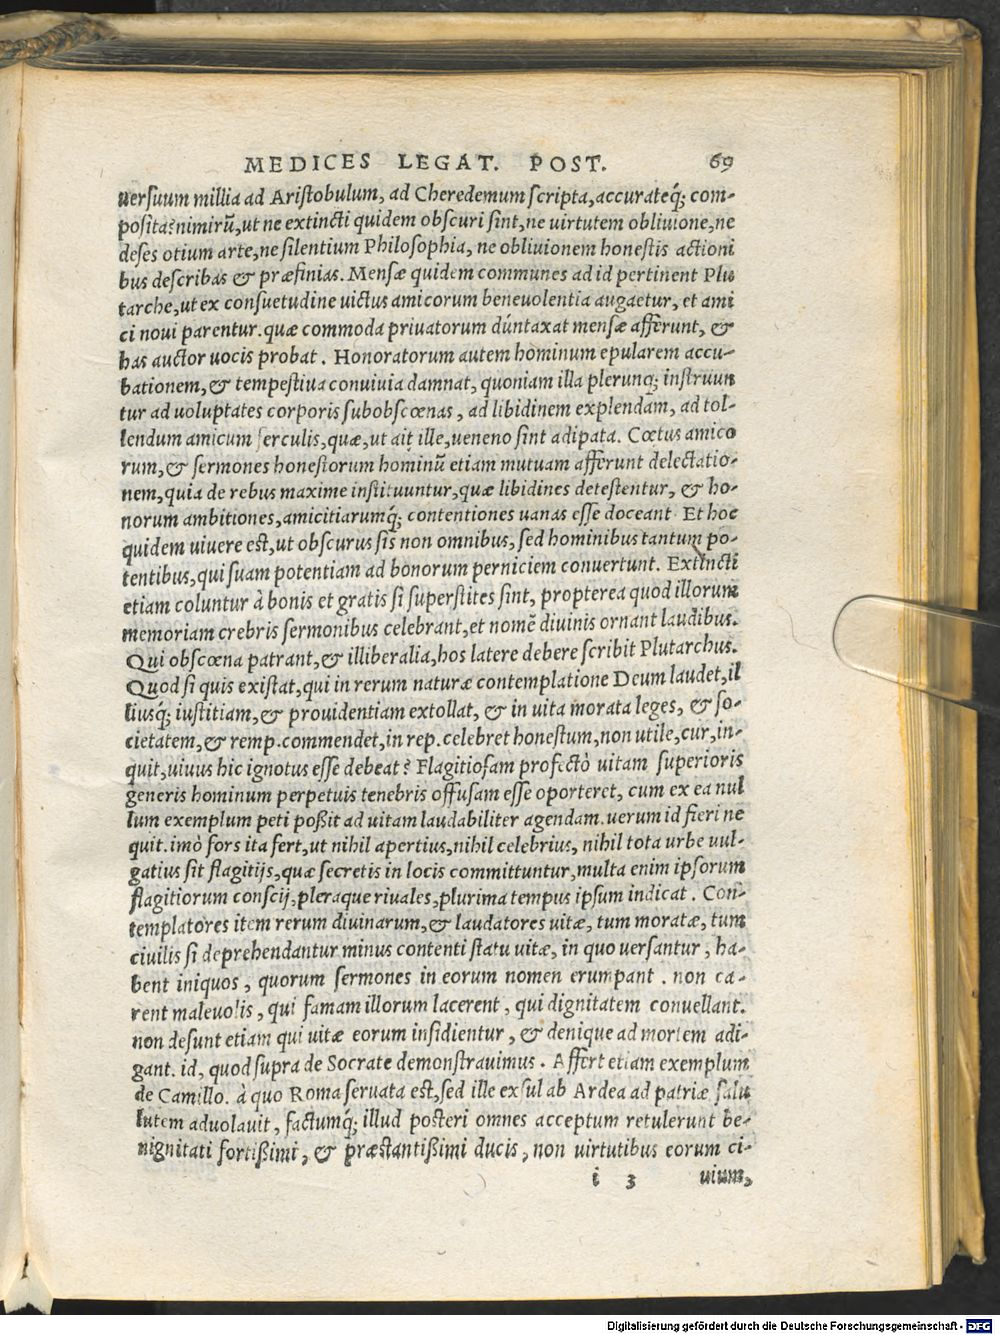 MEDICES LEGAT. POST. 69
uersuum millia ad Aristobulum, ad Cheredemum scripta, accurateq́; com-
posita? nimirũ, ut ne extincti quidem obscuri sint, ne uirtutem obliuione, ne
deses otium arte, ne silentium Philosophia, ne obliuionem honestis actioni
bus describas & præfinias. Mensæ quidem communes ad id pertinent Plu
tarche, ut ex consuetudine uictus amicorum beneuolentia augaetur, et ami
ci noui parentur. quæ commoda priuatorum dúntaxat mensæ afferunt, &
has auctor uocis probat. Honoratorum autem hominum epularem accu-
bationem, & tempestiua conuiuia damnat, quoniam illa plerunq; instruun
tur ad uoluptates corporis subobscœnas, ad libidinem explendam, ad tol-
lendum amicum ferculis, quæ, ut ait ille, ueneno sint adipata. Cœtus amico
rum, & sermones honestorum hominũ etiam mutuam afferunt delectatio-
nem, quia de rebus maxime instituuntur, quæ libidines detestentur, & ho-
norum ambitiones, amicitiarumq́; contentiones uanas esse doceant Et hoc
quidem uiuere est, ut obscurus sis non omnibus, sed hominibus tantum po-
tentibus, qui suam potentiam ad bonorum perniciem conuertunt. Extincti
etiam coluntur à bonis et gratis si superstites sint, propterea quod illorum
memoriam crebris sermonibus celebrant, et nomẽ diuinis ornant laudibus.
Qui obscœna patrant, & illiberalia, hos latere debere scribit Plutarchus.
Quod si quis existat, qui in rerum naturæ contemplatione Deum laudet, il
liusq́; iustitiam, & prouidentiam extollat, & in uita morata leges, & so-
cietatem, & remp. commendet, in rep. celebret honestum, non utile, cur, in-
quit, uiuus hic ignotus esse debeat? Flagitiosam profectò uitam superioris
generis hominum perpetuis tenebris offusam esse oporteret, cum ex ea nul
lum exemplum peti poßit ad uitam laudabiliter agendam. uerum id fieri ne
quit. imò fors ita fert, ut nihil apertius, nihil celebrius, nihil tota urbe uul-
gatius sit flagitijs, quæ secretis in locis committuntur, multa enim ipsorum
flagitiorum conscij, pleraque riuales, plurima tempus ipsum indicat. Con-
templatores item rerum diuinarum, & laudatores uitæ, tum moratæ, tum
ciuilis si deprehendantur minus contenti statu uitæ, in quo uersantur, ha-
bent iniquos, quorum sermones in eorum nomen erumpant. non ca-
rent maleuolis, qui famam illorum lacerent, qui dignitatem conuellant.
non desunt etiam qui uitæ eorum insidientur, & denique ad mortem adi-
gant. id, quod supra de Socrate demonstrauimus. Affert etiam exemplum
de Camillo. à quo Roma seruata est, sed ille exsul ab Ardea ad patriæ salu
lutem aduolauit, factumq́; illud posteri omnes acceptum retulerunt be-
nignitati fortißimi, & præstantißimi ducis, non uirtutibus eorum ci-
i 3 uium,
Digitalisierung gefördert durch die Deutsche Forschungsgemeinschaft - DFG